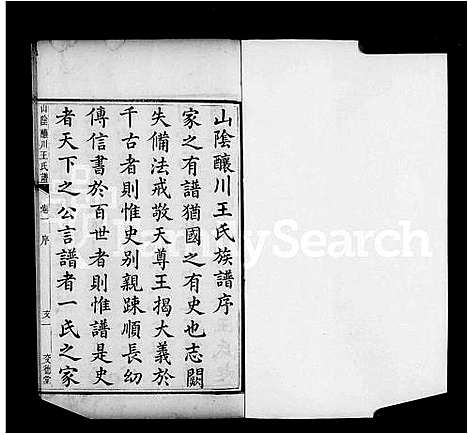 山陰釀川王氏族譜序
家之有譜猶國之有史也志闕
失備法戒敬天尊王揭大義於
千古者則惟史别親踈順長幼
傳信書於百世者則惟譜是史
者天下之公言譜者一氏之家
山陰釀川王氏譜 卷一 序 支一 交德堂
FamilySearch